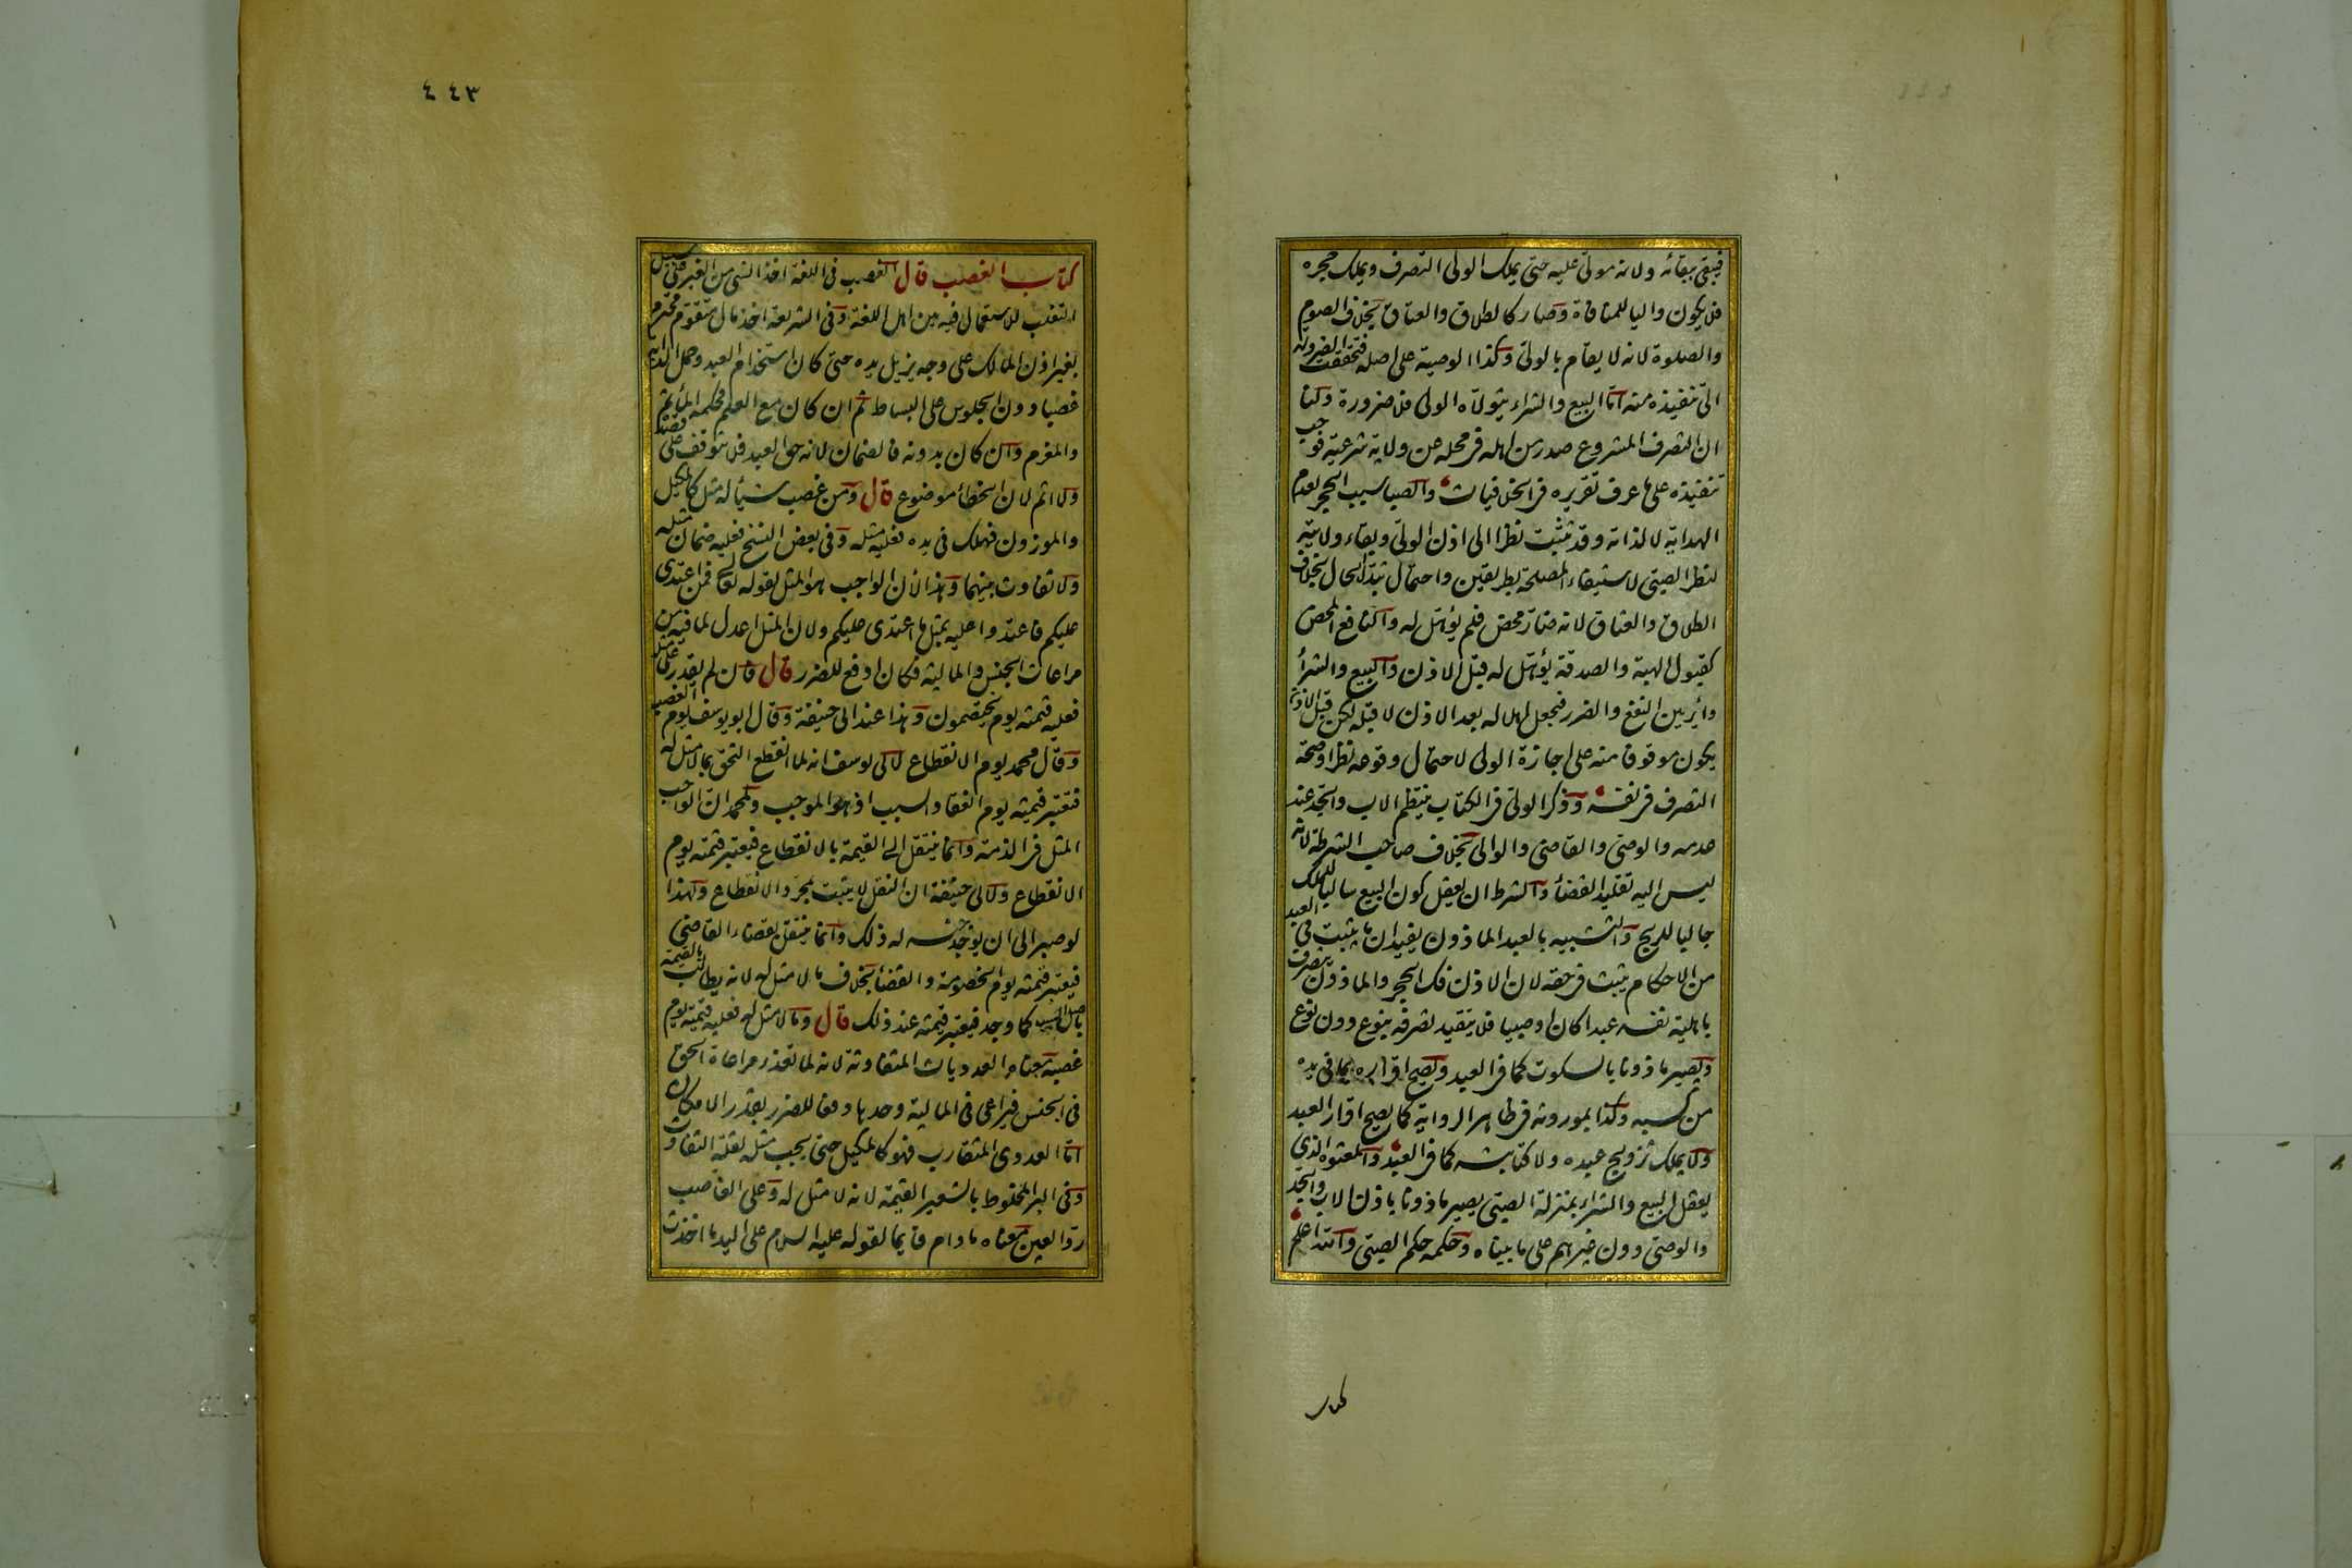 فيبقى ببقائه ولانه مولى عليه حتى يملك الولى التصرف ويملك حجره
فلا يكون واليا للمنافاة وصار كالطلاق والعتاق بخلاف الصوم
والصلوة لانه لا يقام بالولى وكذا الوصية على اصله فتحققت الضرورة
الى تنفيذه منه اما البيع والشراء يتولاه الولى فلا ضرورة ولنا
ان التصرف المشروع صدر من اهله فى محله عن ولاية شرعية فوجب
تنفيذه على ما عرف تقريره فى الخلافيات والصبا سبب الحجر لعدم
الهداية لا لذاته وقد ثبتت نظرا الى اذن الولى وبقاء ولايته
لنظر الصبى لاستيفاء المصلحة بطريقين واحتمال تبدل الحال بخلاف
الطلاق والعتاق لانه ضار محض فلم يؤهل له والنافع المحض
كقبول الهبة والصدقة يؤهل له قبل الاذن والبيع والشراء
دائر بين النفع والضرر فيجعل اهلا له بعد الاذن لا قبله لكن قبل الاذن
يكون موقوفا منه على اجازة الولى لاحتمال وقوعه نظرا وصحة
التصرف فى نفسه وذكر الولى فى الكتاب ينتظم الاب والجد عند
عدمه والوصى والقاضى والوالى بخلاف صاحب الشرطة لانه
ليس اليه تقليد القضاء والشرط ان يعقل كون البيع سالبا للملك
جالبا للربح والتشبيه بالعبد الماذون يفيد ان ما يثبت فى العبد
من الاحكام يثبت فى حقه لان الاذن فك الحجر والماذون يتصرف
باهلية نفسه عبدا كان او صبيا فلا يتقيد تصرفه بنوع دون نوع
ويصير ماذونا بالسكوت كما فى العبد ويصح اقراره بما فى يده
من كسبه وكذا بموروثه فى ظاهر الرواية كما يصح اقرار العبد
ولا يملك تزويج عبده ولا كتابته كما فى العبد والمعتوه الذى
يعقل البيع والشراء بمنزلة الصبى يصير ماذونا باذن الاب والجد
والوصى دون غيرهم على ما بيناه وحكمه حكم الصبى والله اعلم
كتاب
٤٤٣
كتاب الغصب قال الغصب فى اللغة اخذ الشى من الغير على سبيل
التغلب للاستعمال فيه بين اهل اللغة وفى الشريعة اخذ مال متقوم محترم
بغير اذن المالك على وجه يزيل يده حتى كان استخدام العبد وحمل الدابة
غصبا دون الجلوس على البساط ثم ان كان مع العلم فحكمه المأثم
والمغرم وان كان بدونه فالضمان لانه حق العبد فلا يتوقف على قصده
ولا اثم لان الخطأ موضوع قال ومن غصب شيأ له مثل كالمكيل
والموزون فهلك فى يده فعليه مثله وفى بعض النسخ فعليه ضمان مثله
ولا تفاوت بينهما وهذا لان الواجب هو المثل لقوله تعالى فمن اعتدى
عليكم فاعتدوا عليه بمثل ما اعتدى عليكم ولان المثل اعدل لما فيه من
مراعات الجنس والمالية فكان ادفع للضرر قال فان لم يقدر على مثله
فعليه قيمته يوم يختصمون وهذا عند ابى حنيفة وقال ابو يوسف يوم الغصب
وقال محمد يوم الانقطاع لابى يوسف انه لما انقطع التحق بما لا مثل له
فتعتبر قيمته يوم انعقاد السبب اذ هو الموجب ولمحمد ان الواجب
المثل فى الذمة وانما ينتقل الى القيمة بالانقطاع فيعتبر قيمته يوم
الانقطاع ولابى حنيفة ان النقل لا يثبت بمجرد الانقطاع ولهذا
لو صبر الى ان يوجد جنسه له ذلك وانما ينتقل بقضاء القاضى
فيعتبر قيمته يوم الخصومة والقضاء بخلاف ما لا مثل له لانه يطالب بالقيمة
باصل السبب كما وجد فيعتبر قيمته عند ذلك قال وما لا مثل له فعليه قيمته يوم
غصبه معناه العدديات المتفاوتة لانه لما تعذر مراعاة الحق
فى الجنس فيراعى فى المالية وحدها دفعا للضرر بقدر الامكان
اما العددى المتقارب فهو كالمكيل حتى يجب مثله لقلة التفاوت
وفى البر المخلوط بالشعير القيمة لانه لا مثل له وعلى الغاصب
رد العين معناه ما دام قايما لقوله عليه السلام على اليد ما اخذت